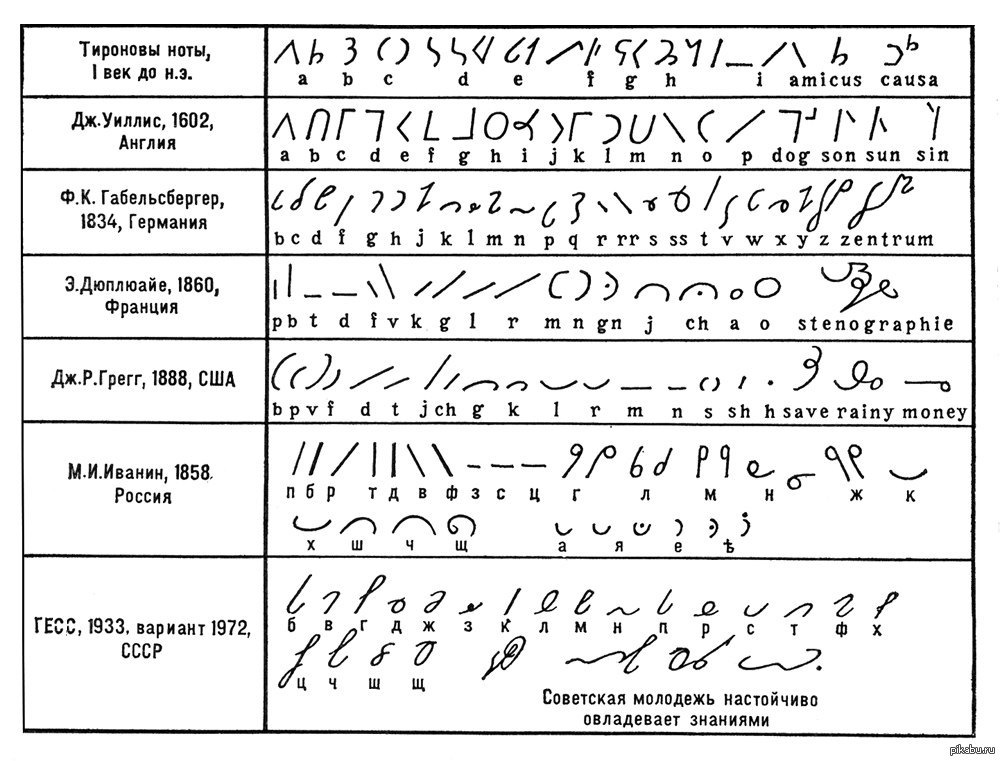 Тироновы ноты,
I век до н.э.
a b c d e f g h i amicus causa
Дж.Уиллис, 1602,
Англия
a b c d e f g h i j k l m n o p dog son sun sin
Ф.К. Габельсбергер,
1834, Германия
b c d f g h j k l m n p q r rr s ss t v w x y z zentrum
Э.Дюплюайе, 1860,
Франция
p b t d f v k g l r m n gn j ch a o stenographie
Дж.Р.Грегг, 1888, США
b p v f d t j ch g k l r m n s sh h save rainy money
М.И.Иванин, 1858.
Россия
п б р т д в ф з с ц г л м н ж к
х ш ч щ а я е ѣ
ГЕСС, 1933. вариант 1972,
СССР
б в г д ж з к л м н п р с т ф х
ц ч ш щ
Советская молодежь настойчиво
овладевает знаниями
pikabu.ru